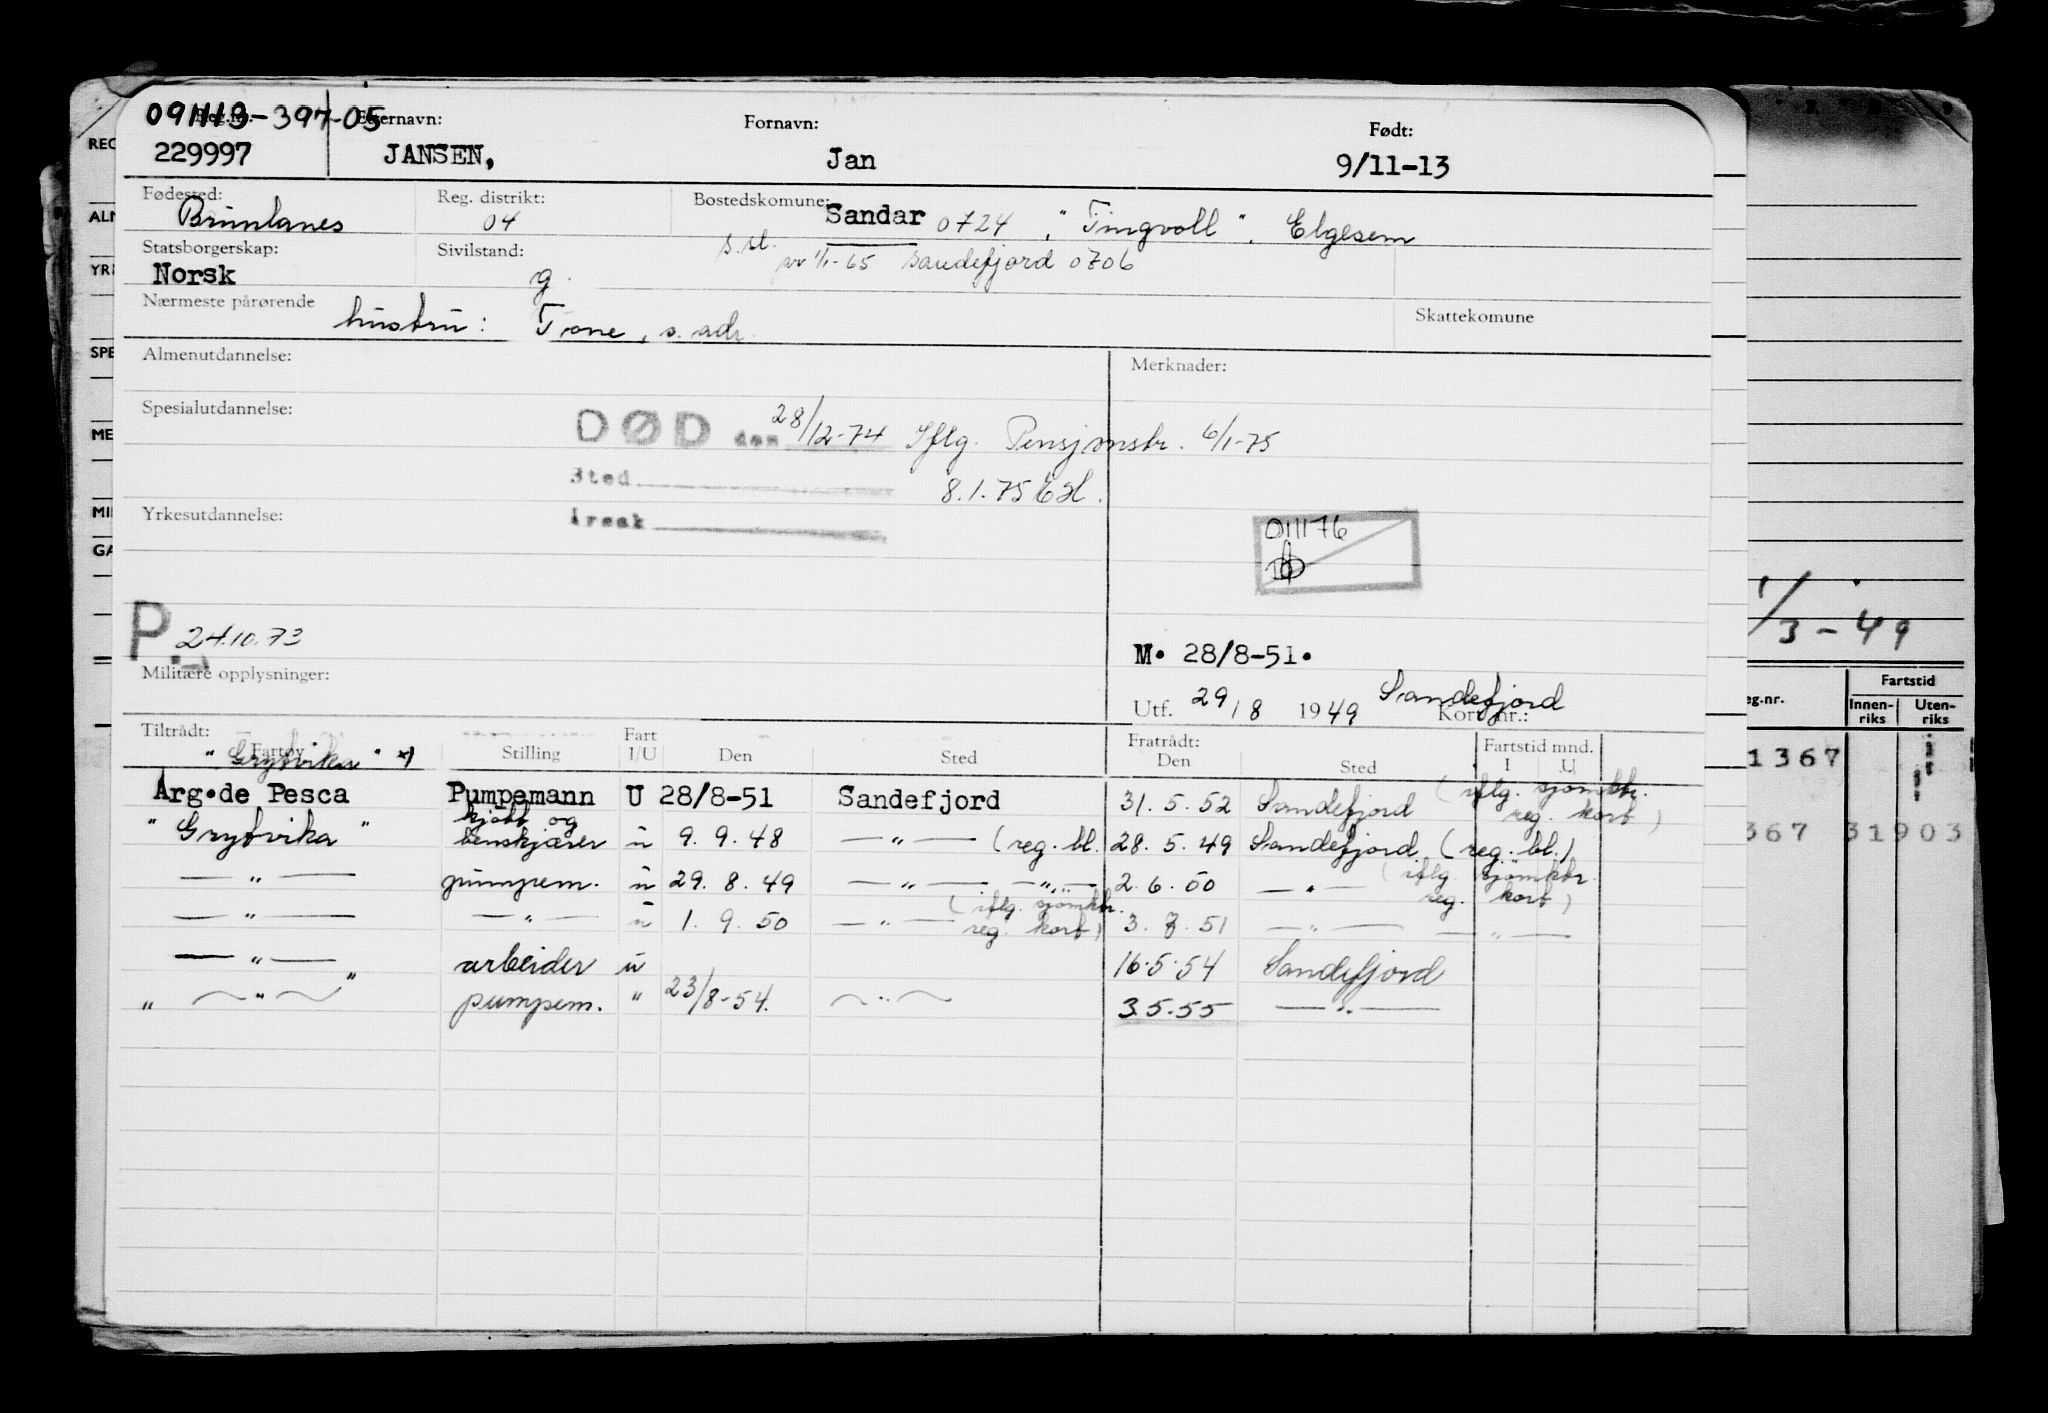 091113-397-05
Reg.nr. Etternavn: Fornavn: Født:
229997 JANSEN, Jan 9/11-13
Fødested: Reg. distrikt: Bostedskomune:
Brunlanes 04 Sandar 0724, "Tingvoll", Elgesem
Statsborgerskap: Sivilstand: s.st.
Norsk g. pr 1/1-65 Sandefjord 0706
Nærmeste pårørende Skattekomune
hustru: Tone, s. adr.
Almenutdannelse: Merknader:
Spesialutdannelse:
DØD den 28/12-74 Iflg. Pensjonstr. 6/1-75
Sted 8.1.75
Yrkesutdannelse: Årsak
011176
P. 24.10.73
M. 28/8-51.
Militære opplysninger:
Utf. 29/8 1949 Sandefjord
Kort nr.:
Tiltrådt: Fratrådt: Fartstid mnd.
Fartøy Stilling Fart I/U Den Sted Den Sted I U
"Grytvika"
Arg.de Pesca Pumpemann U 28/8-51 Sandefjord 31.5.52 Sandefjord (iflg. sjømktr. reg. kort)
"Grytvika" kjøtt og benskjærer u 9.9.48 —"— (reg. bl.) 28.5.49 Sandefjord (reg. bl.)
—"— pumpem. u 29.8.49 —"— —"— 2.6.50 —"— (iflg. sjømktr. reg. kort)
—"— —"— u 1.9.50 —"— (iflg. sjømktr. reg. kort) 3.7.51 —"— —"—
—"— arbeider u 16.5.54 Sandefjord
" —"— " pumpem. " 23/8-54. —"— 3.5.55 —"—
REG
ALM
YR
SPE
ME
MI
GA
1/3-49
eg.nr. Fartstid
Innen-riks Uten-riks
1367
367 31903